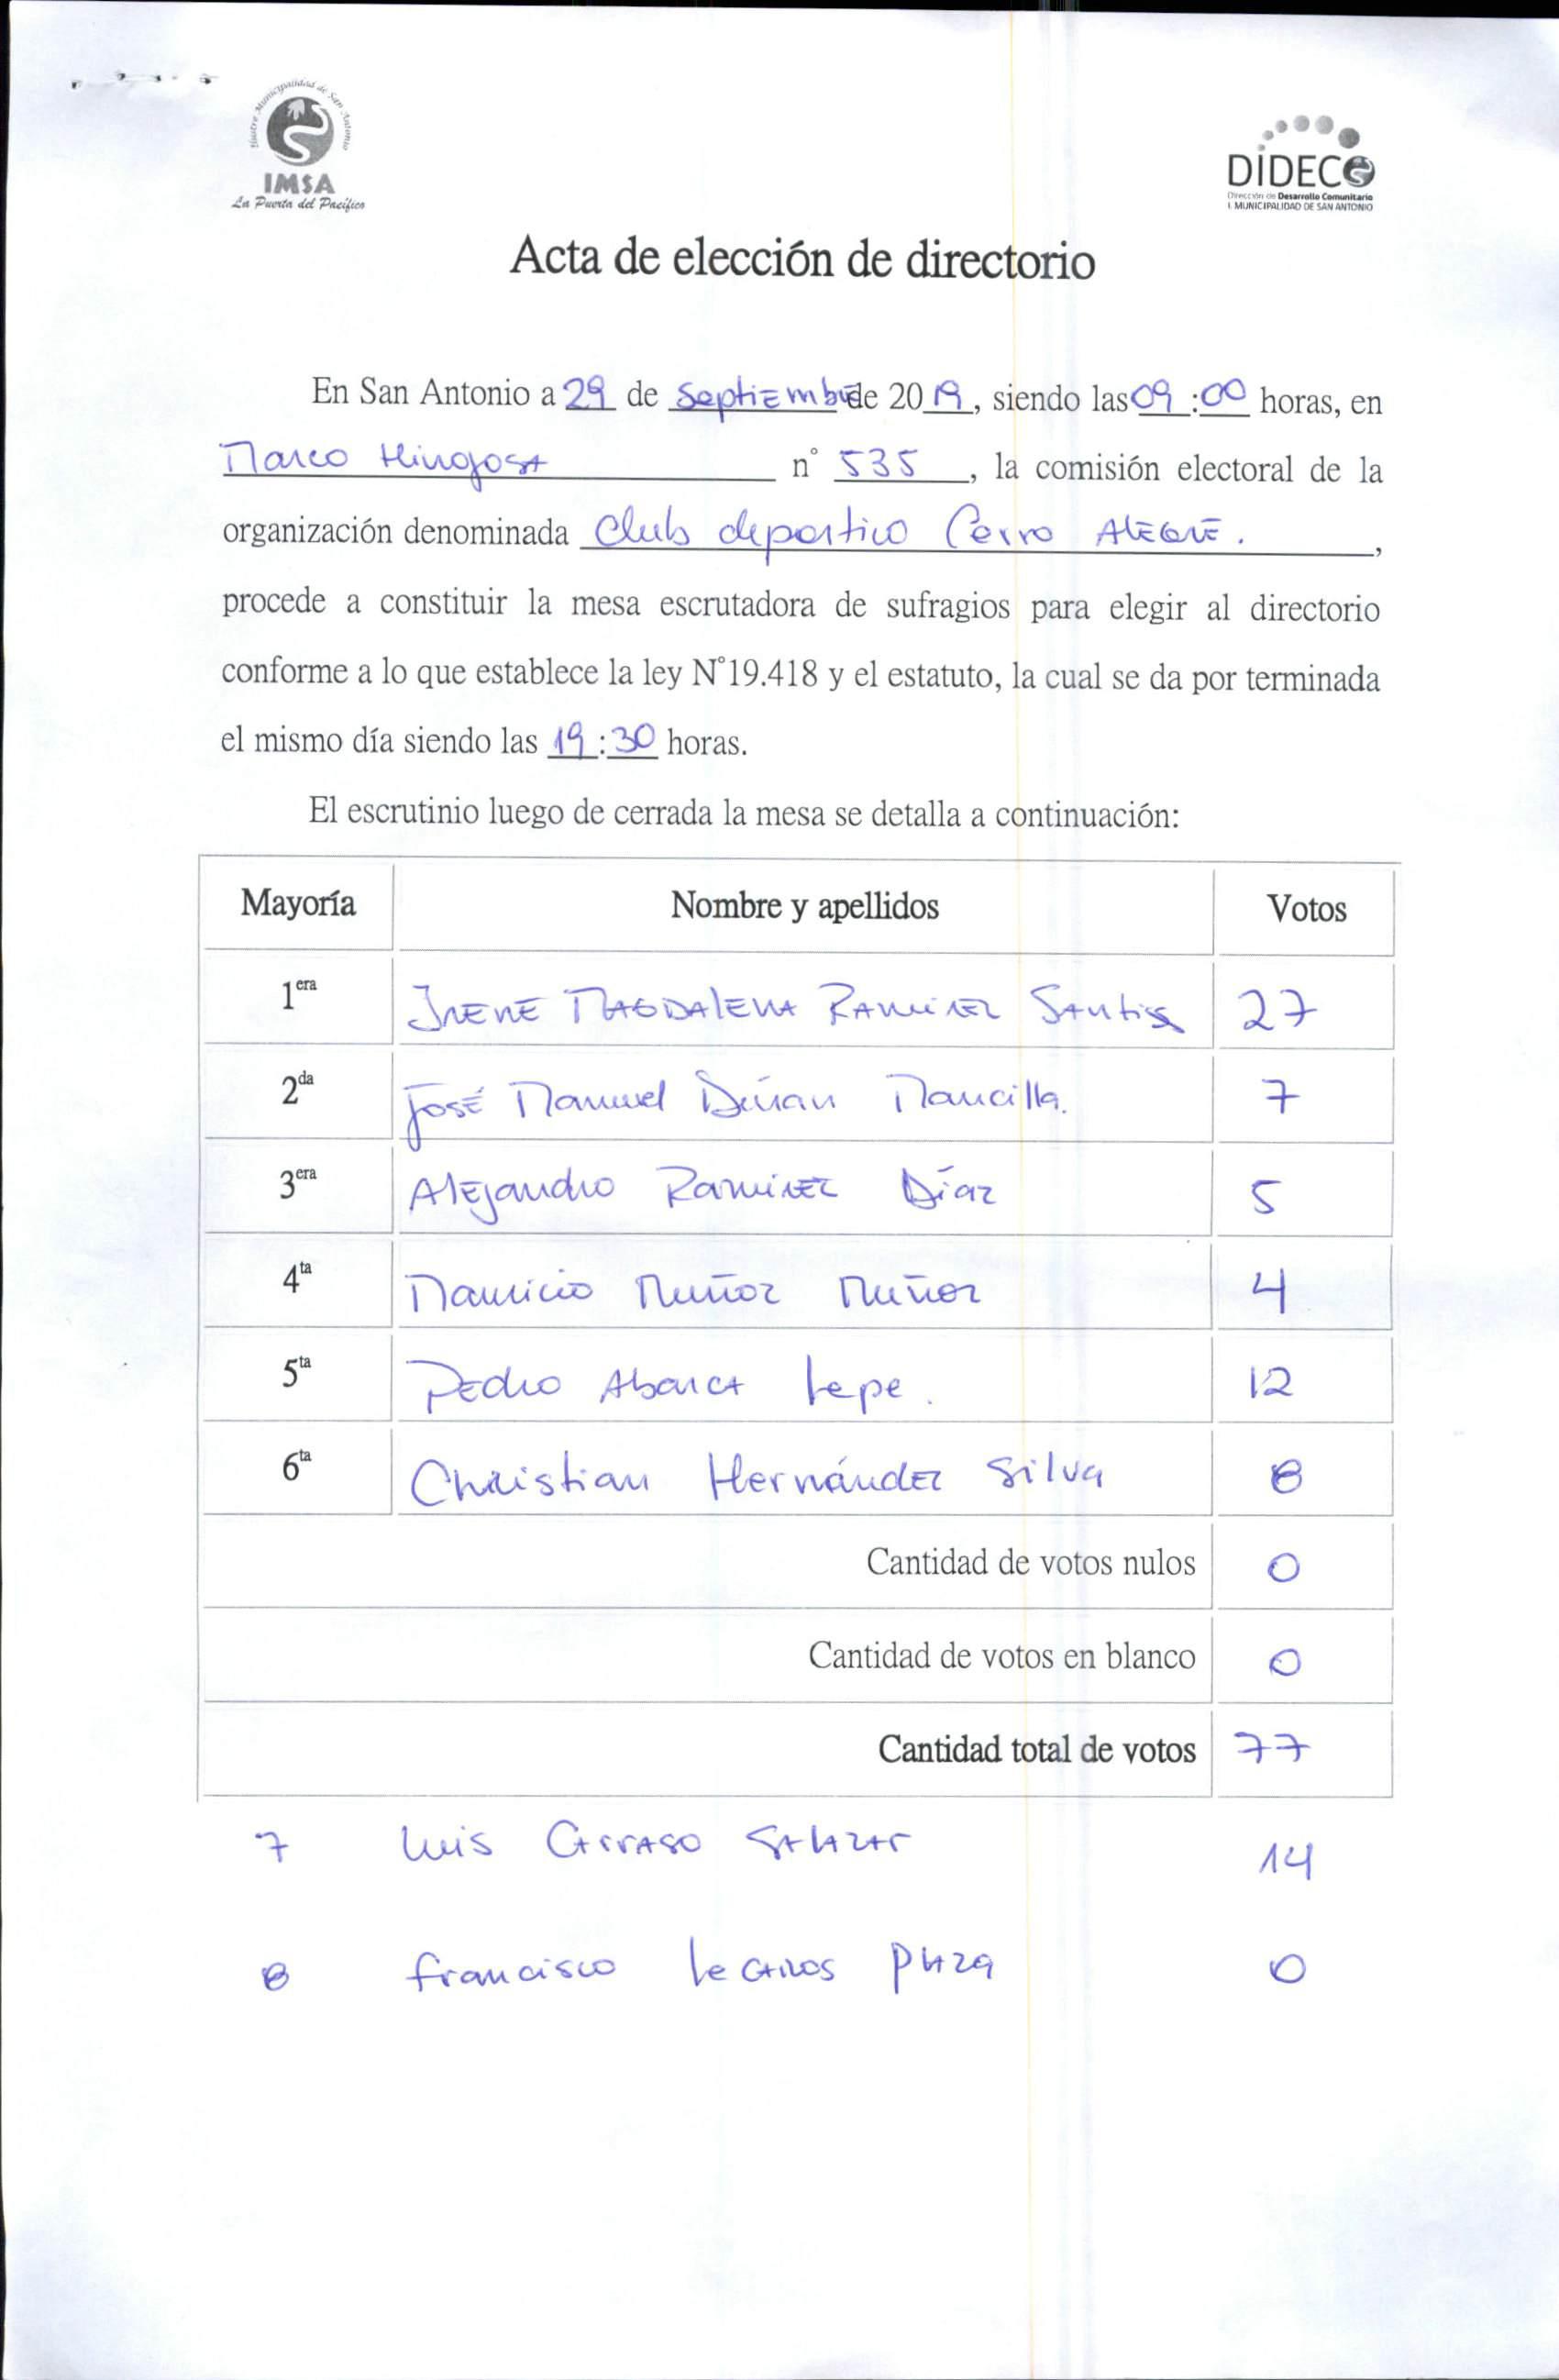 Ilustre Municipalidad de San Antonio
IMSA
La Puerta del Pacífico
DIDECO
Dirección de Desarrollo Comunitario
I. MUNICIPALIDAD DE SAN ANTONIO
Acta de elección de directorio
En San Antonio a 29 de Septiembre de 2019, siendo las 09:00 horas, en
Marco Hinojosa n° 535, la comisión electoral de la
organización denominada Club deportivo Cerro Alegre.,
procede a constituir la mesa escrutadora de sufragios para elegir al directorio
conforme a lo que establece la ley N°19.418 y el estatuto, la cual se da por terminada
el mismo día siendo las 19:30 horas.
El escrutinio luego de cerrada la mesa se detalla a continuación:
Mayoría Nombre y apellidos Votos
1era Irene Magdalena Ramirez 27
2da José Manuel Durán Mancilla. 7
3era Alejandro Ramirez Díaz 5
4ta Mauricio Muñoz Muñoz 4
5ta Pedro Abarca Lepe. 12
6ta Christian Hernández Silva 8
Cantidad de votos nulos 0
Cantidad de votos en blanco 0
Cantidad total de votos 77
7 Luis Carraso Salazar 14
8 Francisco Plaza 0